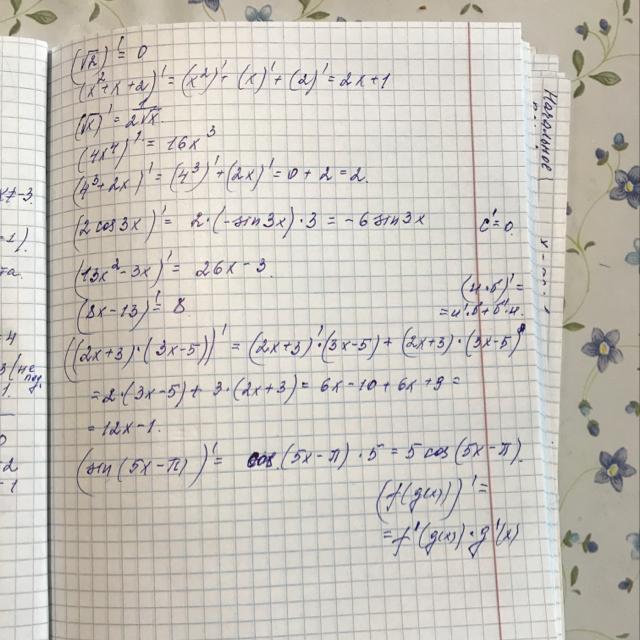 (√2)' = 0
(x²+x+2)' = (x²)' + (x)' + (2)' = 2x+1
(√x)' = 1/(2√x)
(4x⁴)' = 16x³
(4³+2x)' = (4³)' + (2x)' = 0 + 2 = 2.
(2cos3x)' = 2·(-sin3x)·3 = -6sin3x
c' = 0.
(13x²-3x)' = 26x-3.
(u·v)' =
(8x-13)' = 8.
= u'·v+v'·u.
((2x+3)·(3x-5))' = (2x+3)'·(3x-5) + (2x+3)·(3x-5)'
= 2·(3x-5) + 3·(2x+3) = 6x-10+6x+9 =
= 12x-1.
(sin(5x-π))' = cos(5x-π)·5 = 5cos(5x-π).
(f(g(x)))' =
= f'(g(x))·g'(x)
Начальное
x≠-3.
=1).
та.
-4
1.
0
-2
-1